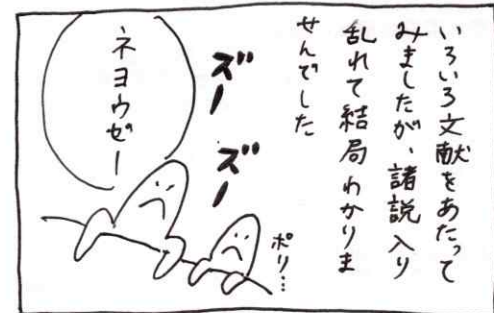 いろいろ文献をあたって
みましたが、諸説入り
乱れて結局わかりま
せんでした
ズー
ズー
ネヨウゼー
ポリ…